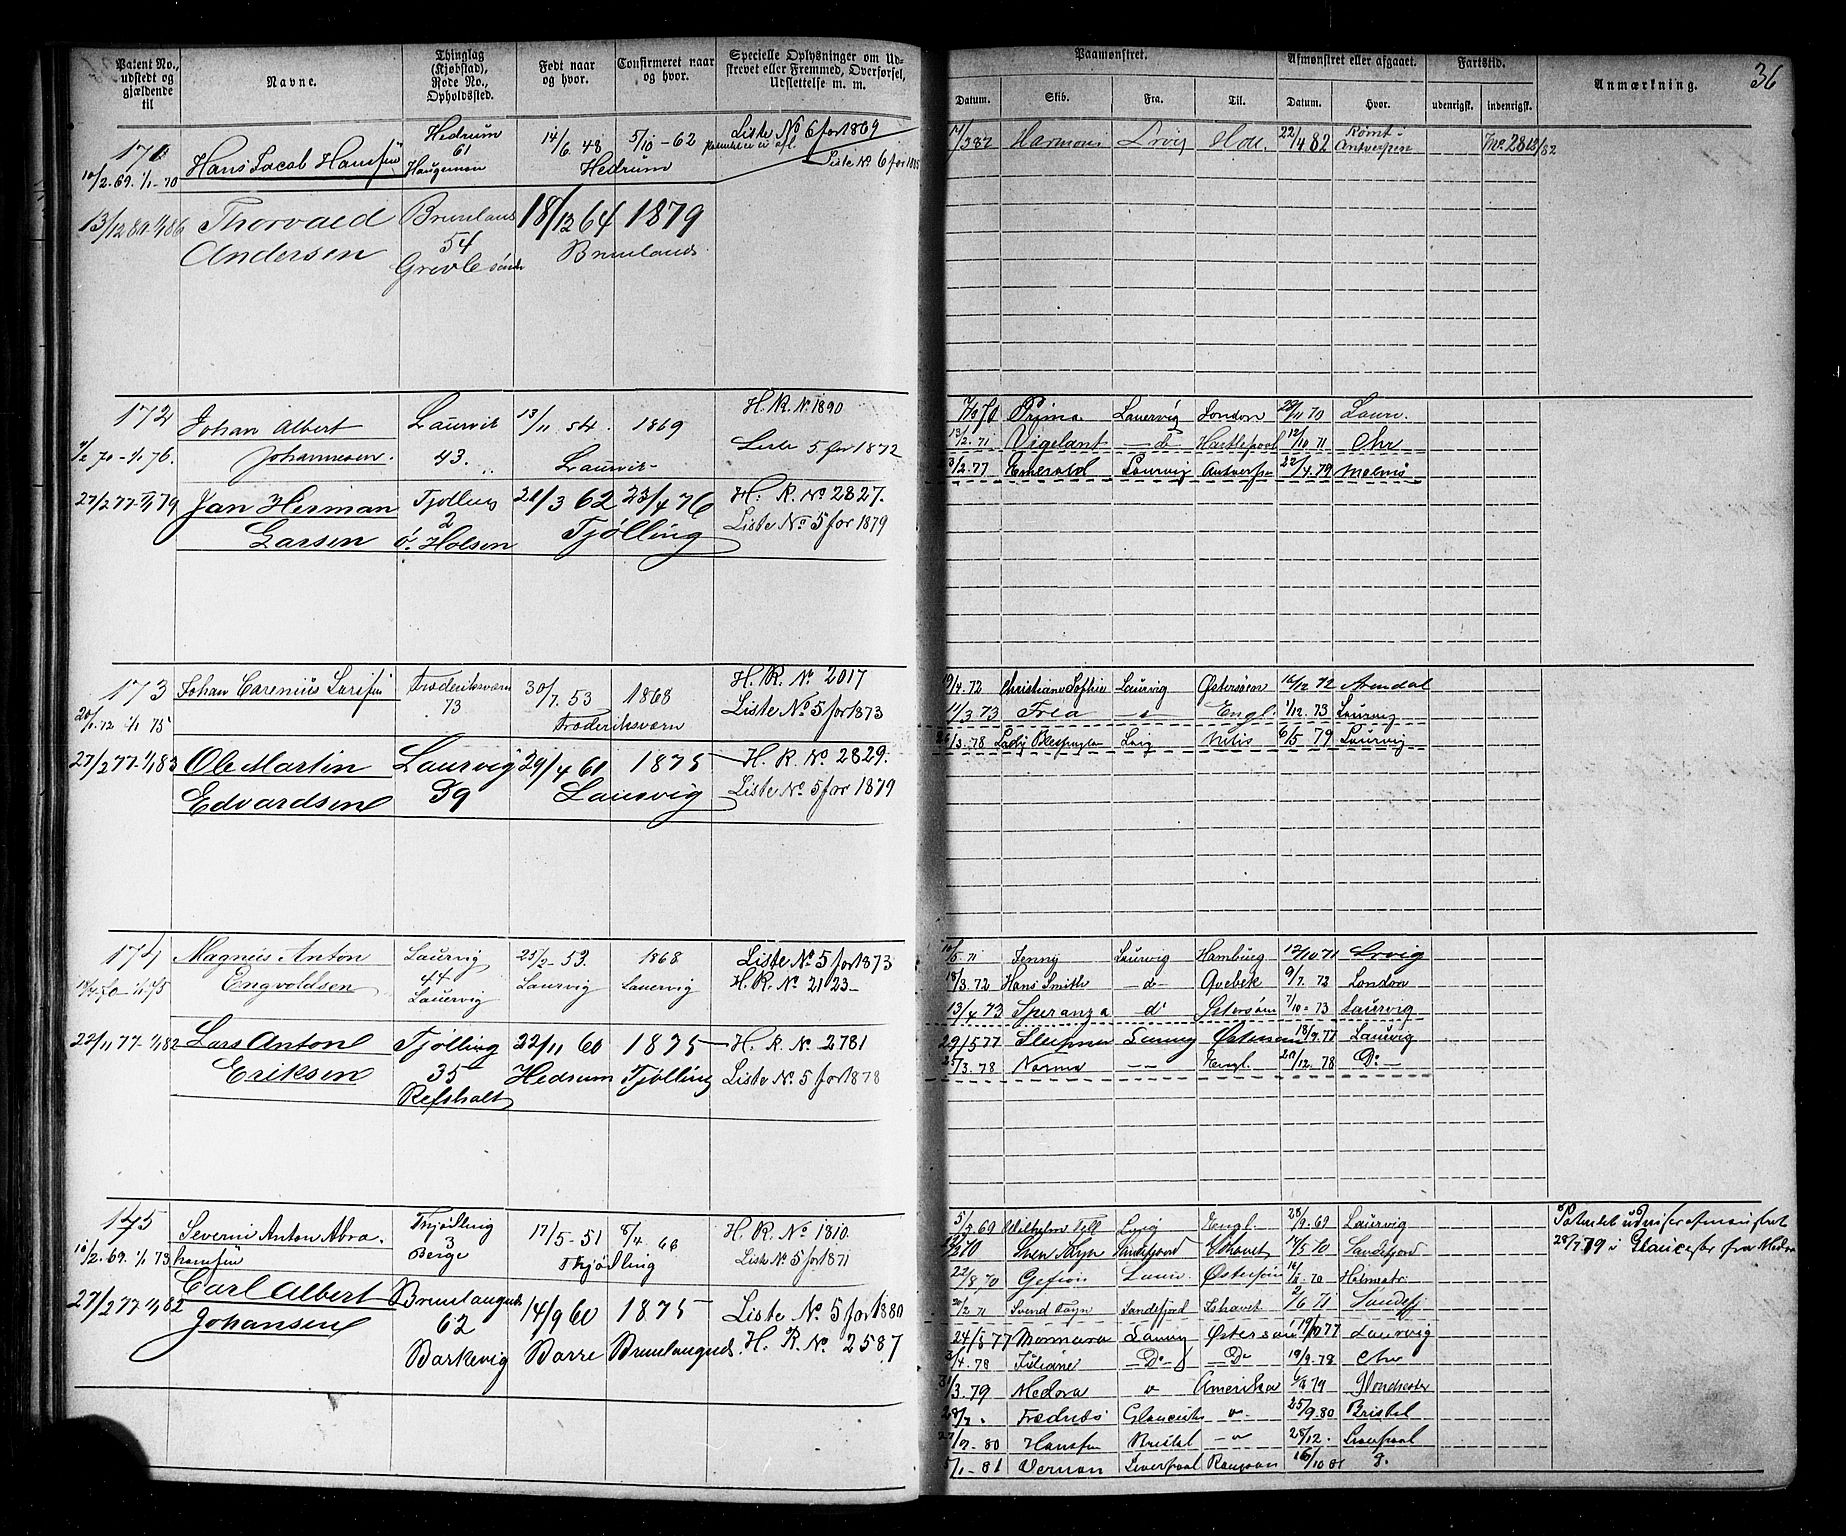 Patent No., udstedt og gjældende til
Navne.
Thinglag (Kjøbstad), Rode No., Opholdssted.
Født naar og hvor.
Confirmeret naar og hvor.
Specielle Oplysninger om Udskrevet eller Fremmed, Overførsel, Udslettelse m. m.
Paamønstret.
Afmønstret eller afgaaet.
Fartstid.
Anmærkning.
36
Datum. Skib. Fra. Til. Datum. Hvor. udenrigsk. indenrigsk.
171
10/2.69. 1/1-70
Hans Jacob Hansen
Hedrum
61
Haugernæs
14/6. 48 5/10-62
Hedrum
Liste No 6 for 1869
Liste No 6 for
Thorvald
Andersen
Brunlans
54
18/12 64 1879
Brunlands
172
1/2 70 - 1/1 76.
Johan Albert
Johannesen.
Laurvik
43.
13/11 54. 1869
Laurvik
H. R. No 1890
Liste 5 for 1872
27/2 77-1/1 79
Jan Herman
Larsen
Tjølling
2
ø. Holsen
21/3 62 23/4 76
Tjølling
H. R. No 2827.
Liste No 5 for 1879
173
20/1.72 1/1 75
Johan Carenius Larsen
Frederiksværn
73
30/7. 53 1868
Frederiksværn
H. R. No 2017
Liste No 5 for 1873
27/2 77-1/1 83
Ole Martin
Edvardsen
Laurvig
59
29/4 61 1875
Laurvig
H. R. No 2829.
Liste No 5 for 1879
174
Magnus Anton
Engvoldsen
Laurvig
44
Laurvig
25/2-53. 1868
Laurvig Laurvig
Liste No 5 for 1873
H. R. No 2123-
22/11 77-1/1 82
Lars Anton
Eriksen
Tjølling
35
Refsholt
22/11 60 1875
Hedrum Tjølling
H. R. No 2781
Liste No 5 for 1878
175
10/2.69. 1/1 73
Severin Anton Abra-
hamsen
Thjødling
3
Berge
17/5-51 8/4.66
Thjødling
H. R. No 1810.
Liste No 5 for 1871
27/2 77-1/1 82
Carl Albert
Johansen
Brunlangnds
62
Barkevig
14/9 60 1875
Barre Brunlangnds.
Liste No 5 for 1880
H. R. No 2587
Harmoni Lrvig 22/4 82 Antverpen
Prima. Laurvig London 70 Laur.
13/2.71 Vigelant -d- Hartlepool 12/10 71 Chr
3/2.77 Emerald Laurvig Antverpen 22/4.79 Malmø
19/4.72 Christiane Sofhie Laurvig Østersøen 16/12 72 Arendal
11/3 73 Frea Engl. 1/12.73 Laurvig
26/3.78 Lady Lvig 6/5 79 Laurvig
10/5 71 Jenny Laurvig Hamburg 12/10 71 Lrvig
18/3.72 Hans Smith -d- Qvebek 9/7. 72 London
13/4 73 Speranza d Østersøen 7/10-73 Laurvig
29/5 77 Sleipner Laurvig Østersøen 18/9.77 Laurvig
25/3.78 Norma -- Engl. 20/12.78 Do-
5/5 69 Wilhelm Tell Lvig Engl. 28/9.69 Laurvig
Sven Foyn Sandefjord Ishavet 14/5 70 Sandefjord
22/8 70 Gefion Laur. Østersøen 70 Holmestr.
20/2 71 Svend Foyn Sandefjord Ishavet 2/6 71 Sandefj
24/5 77 Marmara Laurvig Østersøen 77 Laurvig
3/4.78 Juliane -Do- -Do- 19/9.78 Chr
31/3.79 Medora Amerika 79 Glouchester
28/7. Glaucester 25/9.80 Bristol
27/9-80 Hansen Bristol 28/12. Liverpool
5/1-81 Vernon Liverpool Rangoon 16/10 81
28/7.79 i Glaucester fra Medora